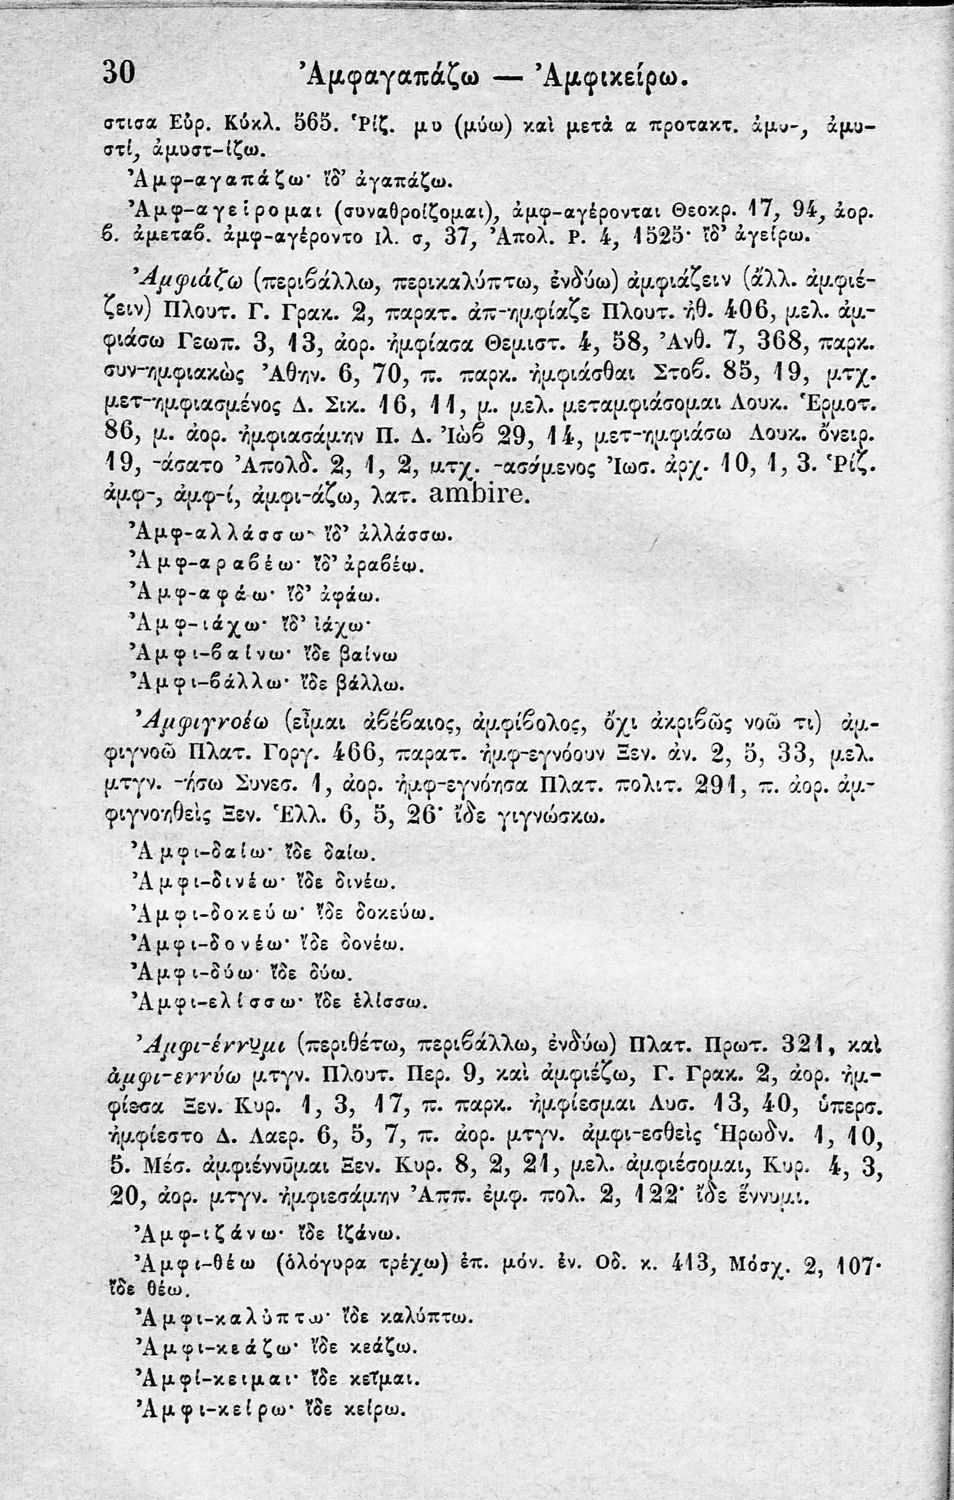 30 Ἀμφαγαπάζω — Ἀμφικείρω.
στισα Εὐρ. Κύκλ. 565. Ῥίζ. μυ (μύω) καὶ μετὰ α προτακτ. ἀμυ-, ἀμυ-
στί, ἀμυστ-ίζω.
Ἀμφ-αγαπάζω· ἴδ' ἀγαπάζω.
Ἀμφ-αγείρομαι (συναθροίζομαι), ἀμφ-αγέρονται Θεοκρ. 17, 94, ἀορ.
β. ἀμεταβ. ἀμφ-αγέροντο Ιλ. σ, 37, Ἀπολ. Ρ. 4, 1525· ἴδ' ἀγείρω.
Ἀμφιάζω (περιβάλλω, περικαλύπτω, ἐνδύω) ἀμφιάζειν (ἄλλ. ἀμφιέ-
ζειν) Πλουτ. Γ. Γρακ. 2, παρατ. ἀπ-ημφίαζε Πλουτ. ἠθ. 406, μελ. ἀμ-
φιάσω Γεωπ. 3, 13, ἀορ. ἠμφίασα Θεμιστ. 4, 58, Ἀνθ. 7, 368, παρκ.
συν-ημφιακὼς Ἀθην. 6, 70, π. παρκ. ἠμφιάσθαι Στοβ. 85, 19, μτχ.
μετ-ημφιασμένος Δ. Σικ. 16, 11, μ. μελ. μεταμφιάσομαι Λουκ. Ἑρμοτ.
86, μ. ἀορ. ἠμφιασάμην Π. Δ. Ἰὼβ 29, 14, μετ-ημφιάσω Λουκ. ὄνειρ.
19, -άσατο Ἀπολδ. 2, 1, 2, μτχ. -ασάμενος Ἰωσ. ἀρχ. 10, 1, 3. Ῥίζ.
ἀμφ-, ἀμφ-ί, ἀμφι-άζω, λατ. ambire.
Ἀμφ-αλλάσσω· ἴδ' ἀλλάσσω.
Ἀμφ-αραβέω· ἴδ' ἀραβέω.
Ἀμφ-αφάω· ἴδ' ἀφάω.
Ἀμφ-ιάχω· ἴδ' ἰάχω·
Ἀμφι-βαίνω· ἴδε βαίνω
Ἀμφι-βάλλω· ἴδε βάλλω.
Ἀμφιγνοέω (εἶμαι ἀβέβαιος, ἀμφίβολος, ὄχι ἀκριβῶς νοῶ τι) ἀμ-
φιγνοῶ Πλατ. Γοργ. 466, παρατ. ἠμφ-εγνόουν Ξεν. ἀν. 2, 5, 33, μελ.
μτγν. -ήσω Συνεσ. 1, ἀορ. ἠμφ-εγνόησα Πλατ. πολιτ. 291, π. ἀορ. ἀμ-
φιγνοηθεὶς Ξεν. Ἑλλ. 6, 5, 26· ἴδε γιγνώσκω.
Ἀμφι-δαίω· ἴδε δαίω.
Ἀμφι-δινέω· ἴδε δινέω.
Ἀμφι-δοκεύω· ἴδε δοκεύω.
Ἀμφι-δονέω· ἴδε δονέω.
Ἀμφι-δύω· ἴδε δύω.
Ἀμφι-ελίσσω· ἴδε ἑλίσσω.
Ἀμφι-έννῡμι (περιθέτω, περιβάλλω, ἐνδύω) Πλατ. Πρωτ. 321, καὶ
ἀμφι-εννύω μτγν. Πλουτ. Περ. 9, καὶ ἀμφιέζω, Γ. Γρακ. 2, ἀορ. ἠμ-
φίεσα Ξεν. Κυρ. 1, 3, 17, π. παρκ. ἠμφίεσμαι Λυσ. 13, 40, ὑπερσ.
ἠμφίεστο Δ. Λαερ. 6, 5, 7, π. ἀορ. μτγν. ἀμφι-εσθεὶς Ἡρωδν. 1, 10,
5. Μέσ. ἀμφιέννῦμαι Ξεν. Κυρ. 8, 2, 21, μελ. ἀμφιέσομαι, Κυρ. 4, 3,
20, ἀορ. μτγν. ἠμφιεσάμην Ἀππ. ἐμφ. πολ. 2, 122· ἴδε ἕννυμι.
Ἀμφ-ιζάνω· ἴδε ἱζάνω.
Ἀμφι-θέω (ὁλόγυρα τρέχω) ἐπ. μόν. ἐν. Οδ. κ. 413, Μόσχ. 2, 107·
ἴδε θέω.
Ἀμφι-καλύπτω· ἴδε καλύπτω.
Ἀμφι-κεάζω· ἴδε κεάζω.
Ἀμφί-κειμαι· ἴδε κεῖμαι.
Ἀμφι-κείρω· ἴδε κείρω.